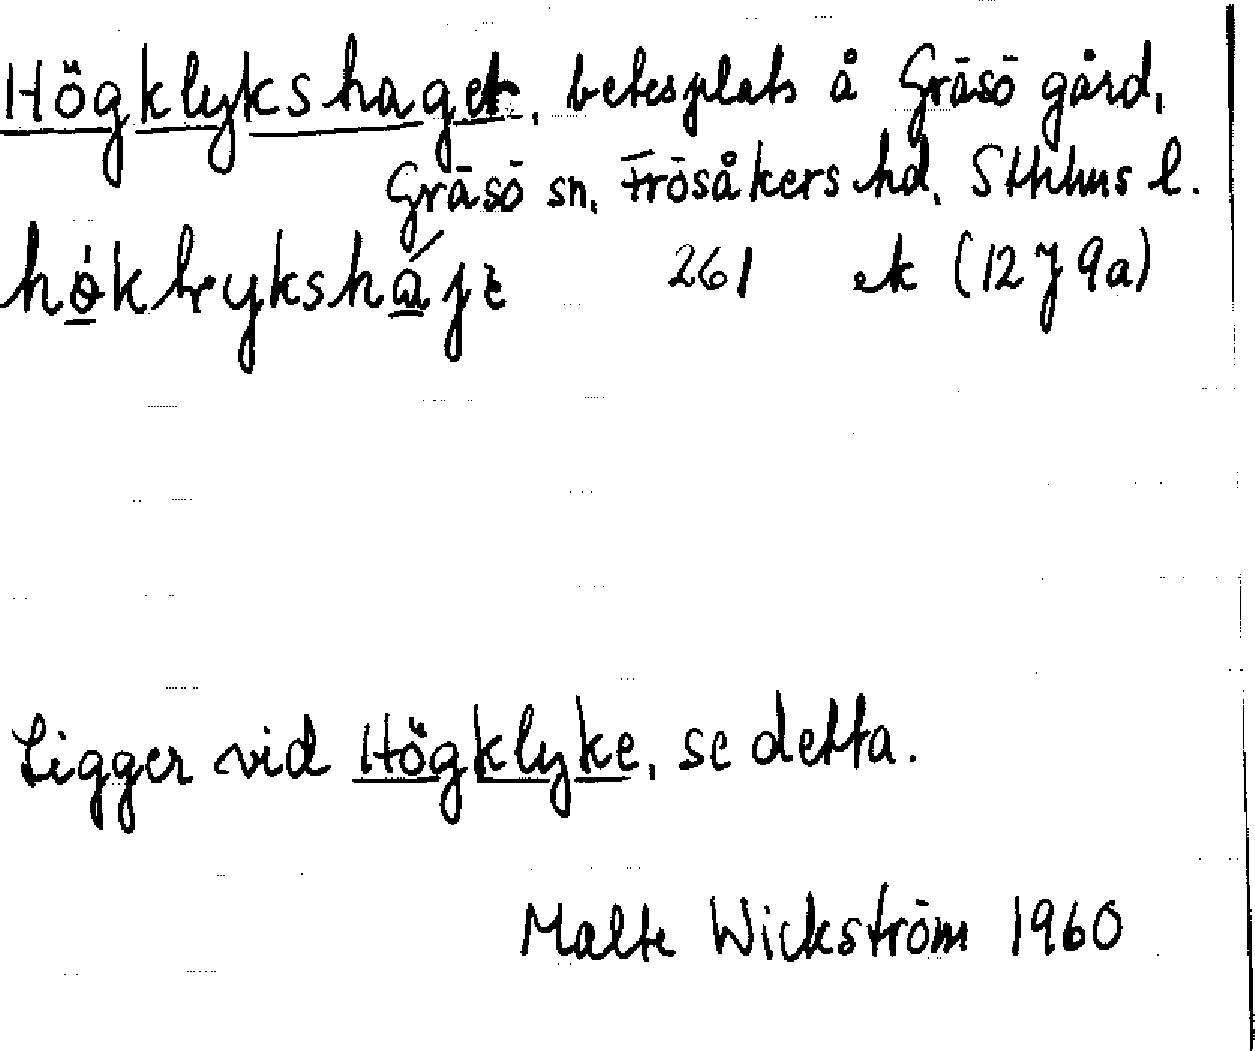 Högklykshaget, betesplats å Gräsö gård,
Gräsö sn, Frösåkers hd, Sthlms l.
261 ek (12J9a)
Ligger vid Högklyke, se detta.
Malte Wickström 1960